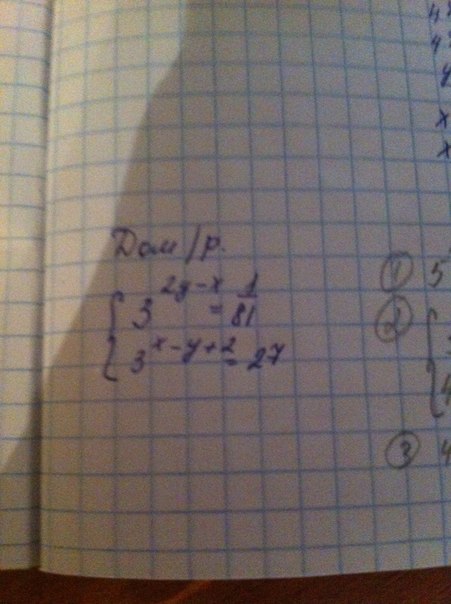 Дом/р.
{ 3^{2y-x} = 1/81
{ 3^{x-y+2} = 27
4
4
y
x
x
① 5
② {
4
③ 4